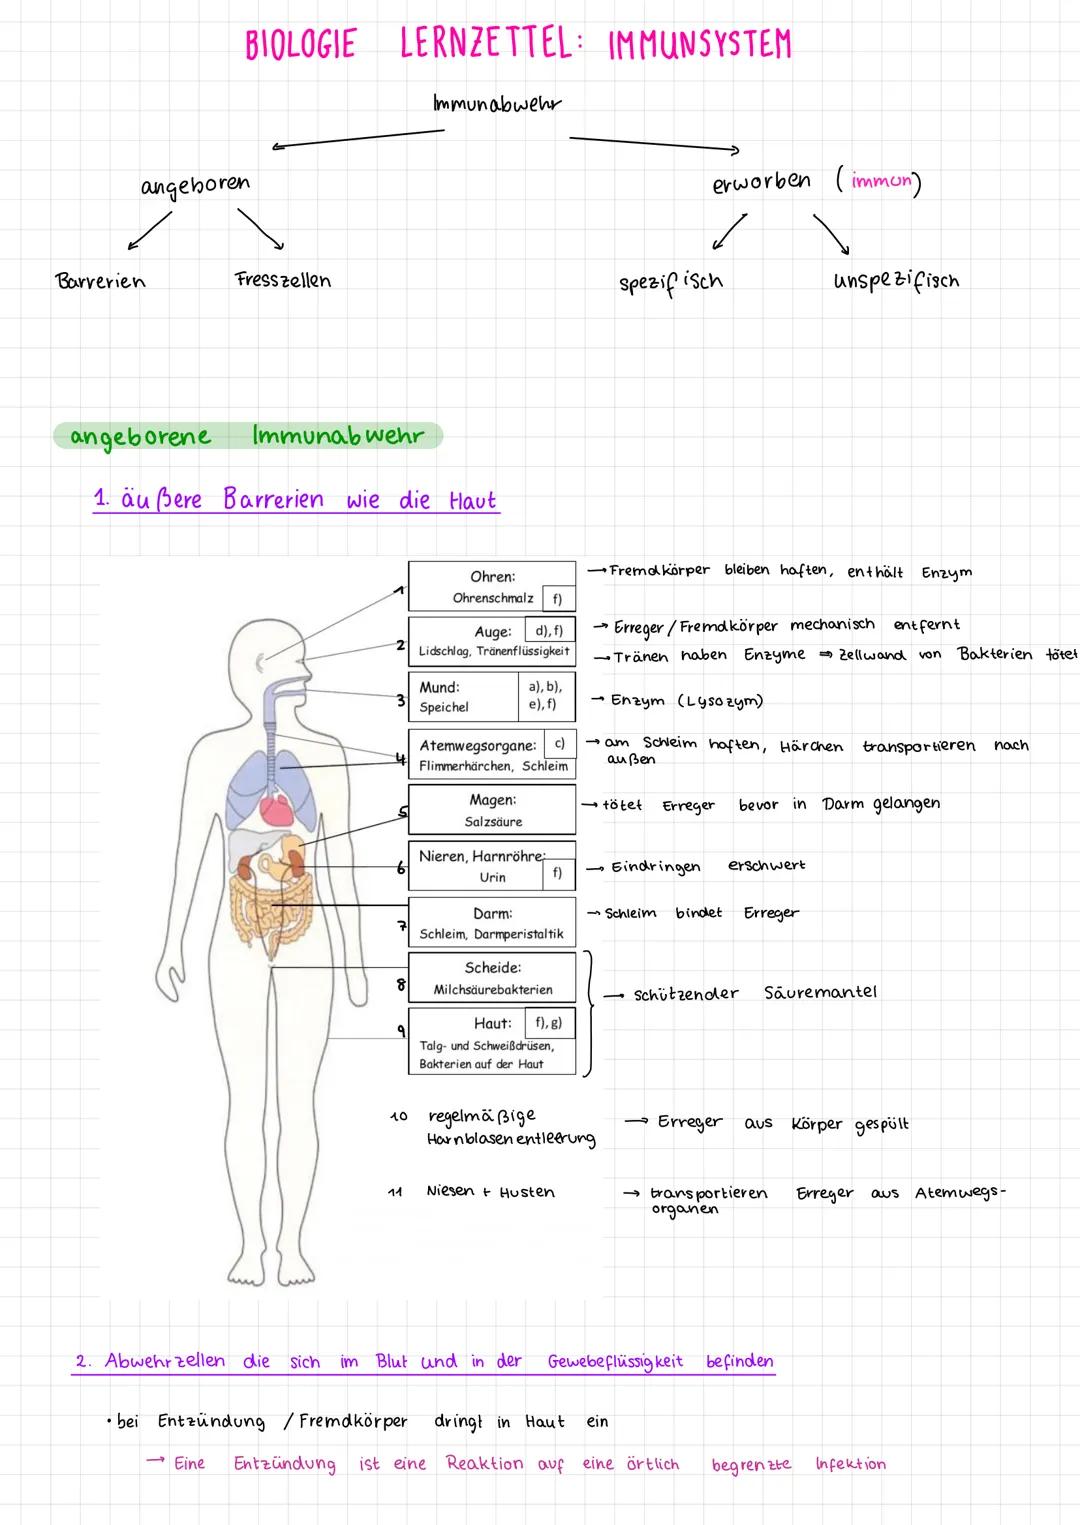 BIOLOGIE LERNZETTEL: IMMUNSYSTEM
Immunabwehr
angeboren
erworben (immun)
Barrerien
Fresszellen
spezifisch
unspezifisch
angeborene Immunabwehr
1. äußere Barrerien wie die Haut
1
Ohren:
Ohrenschmalz f)
→ Fremdkörper bleiben haften, enthält Enzym
2
Auge: d), f)
Lidschlag, Tränenflüssigkeit
→ Erreger / Fremdkörper mechanisch entfernt
→ Tränen haben Enzyme ⇒ Zellwand von Bakterien tötet
3
Mund: a), b),
Speichel e), f)
→ Enzym (Lysozym)
4
Atemwegsorgane: c)
Flimmerhärchen, Schleim
→ am Schleim haften, Härchen transportieren nach
außen
5
Magen:
Salzsäure
→ tötet Erreger bevor in Darm gelangen
6
Nieren, Harnröhre:
Urin f)
→ Eindringen erschwert
7
Darm:
Schleim, Darmperistaltik
→ Schleim bindet Erreger
8
Scheide:
Milchsäurebakterien
→ schützender Säuremantel
9
Haut: f), g)
Talg- und Schweißdrüsen,
Bakterien auf der Haut
10 regelmäßige
Harnblasenentleerung
→ Erreger aus Körper gespült
11 Niesen + Husten
→ transportieren Erreger aus Atemwegs-
organen
2. Abwehrzellen die sich im Blut und in der Gewebeflüssigkeit befinden
• bei Entzündung / Fremdkörper dringt in Haut ein
→ Eine Entzündung ist eine Reaktion auf eine örtlich begrenzte Infektion